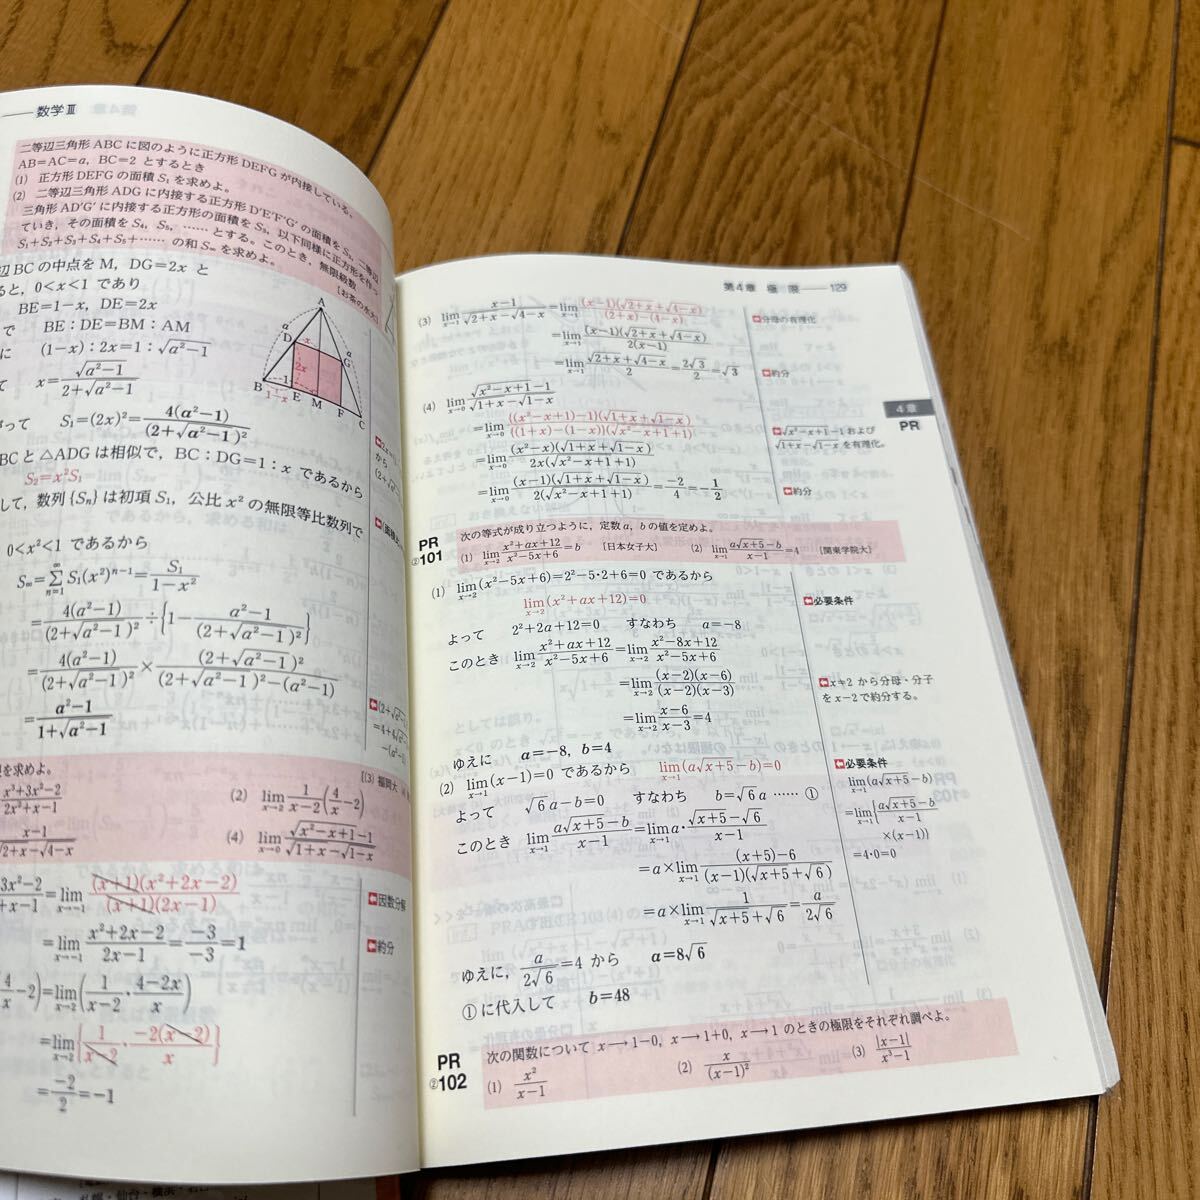 数学Ⅲ
二等辺三角形 ABC に図のように正方形 DEFG が内接している。
AB=AC=a, BC=2 とするとき
(1) 正方形 DEFG の面積 S₁ を求めよ。
(2) 二等辺三角形 ADG に内接する正方形 D'E'F'G' の面積を S₂, 二等辺
三角形 AD'G' に内接する正方形の面積を S₃, 以下同様に正方形を作っ
ていき, その面積を S₄, S₅, …… とする。このとき, 無限級数
S₁+S₂+S₃+S₄+S₅+…… の和 S∞ を求めよ。
[お茶の水大]
辺 BC の中点を M, DG=2x と
ると, 0<x<1 であり
BE=1−x, DE=2x
で BE:DE=BM:AM
に (1−x):2x=1:√(a²−1)
て x=√(a²−1)/(2+√(a²−1))
って S₁=(2x)²=4(a²−1)/(2+√(a²−1))²
A
a
a
D
x
G
2x
B
1
1−x
E
M
F
C
BCと△ADG は相似で, BC:DG=1:x であるから
S₂=x²S₁
して, 数列{Sₙ}は初項 S₁, 公比 x² の無限等比数列で
0<x²<1 であるから
S∞=Σ[n=1→∞]S₁(x²)ⁿ⁻¹=S₁/(1−x²)
=4(a²−1)/(2+√(a²−1))²÷{1−(a²−1)/(2+√(a²−1))²}
=4(a²−1)/(2+√(a²−1))²×(2+√(a²−1))²/((2+√(a²−1))²−(a²−1))
=(a²−1)/(1+√(a²−1))
を求めよ。
[(3) 福岡大
x³+3x²−2/2x²+x−1
(2) lim[x→2] 1/(x−2)(4/x−2)
x−1/√(2+x)−√(4−x)
(4) lim[x→0] (√(x²−x+1)−1)/(√(1+x)−√(1−x))
3x²−2/+x−1=lim[x→−1] (x+1)(x²+2x−2)/(x+1)(2x−1)
因数分解
=lim[x→−1] (x²+2x−2)/(2x−1)=−3/−3=1
約分
(4/x−2)=lim[x→2](1/(x−2)・(4−2x)/x)
=lim[x→2]{1/(x−2)・−2(x−2)/x}
=−2/2=−1
第4章 極 限 129
(3) lim[x→1] (x−1)/(√(2+x)−√(4−x))=lim[x→1] (x−1)(√(2+x)+√(4−x))/((2+x)−(4−x))
分母の有理化
=lim[x→1] (x−1)(√(2+x)+√(4−x))/2(x−1)
=lim[x→1] (√(2+x)+√(4−x))/2=2√3/2=√3
約分
(4) lim[x→0] (√(x²−x+1)−1)/(√(1+x)−√(1−x))
=lim[x→0] ((x²−x+1)−1)(√(1+x)+√(1−x))/({(1+x)−(1−x)}(√(x²−x+1)+1))
√(x²−x+1)−1 および
√(1+x)−√(1−x) を有理化。
=lim[x→0] (x²−x)(√(1+x)+√(1−x))/2x(√(x²−x+1)+1)
=lim[x→0] (x−1)(√(1+x)+√(1−x))/2(√(x²−x+1)+1)=−2/4=−1/2
約分
4章
PR
PR
②101
次の等式が成り立つように, 定数 a, b の値を定めよ。
(1) lim[x→2] (x²+ax+12)/(x²−5x+6)=b [日本女子大] (2) lim[x→1] (a√(x+5)−b)/(x−1)=4 [関東学院大]
(1) lim[x→2](x²−5x+6)=2²−5・2+6=0 であるから
lim[x→2](x²+ax+12)=0
必要条件
よって 2²+2a+12=0 すなわち a=−8
このとき lim[x→2] (x²+ax+12)/(x²−5x+6)=lim[x→2] (x²−8x+12)/(x²−5x+6)
=lim[x→2] (x−2)(x−6)/(x−2)(x−3)
x≠2 から分母・分子
を x−2 で約分する。
=lim[x→2] (x−6)/(x−3)=4
ゆえに a=−8, b=4
(2) lim[x→1](x−1)=0 であるから lim[x→1](a√(x+5)−b)=0
必要条件
lim[x→1](a√(x+5)−b)
=lim[x→1]{(a√(x+5)−b)/(x−1)
×(x−1)}
=4・0=0
よって √6 a−b=0 すなわち b=√6 a …… ①
このとき lim[x→1] (a√(x+5)−b)/(x−1)=lim[x→1] a・(√(x+5)−√6)/(x−1)
=a×lim[x→1] ((x+5)−6)/((x−1)(√(x+5)+√6))
=a×lim[x→1] 1/(√(x+5)+√6)=a/2√6
ゆえに, a/2√6=4 から a=8√6
①に代入して b=48
PR
②102
次の関数について x→1−0, x→1+0, x→1 のときの極限をそれぞれ調べよ。
(1) x²/(x−1) (2) x/(x−1)² (3) |x−1|/(x³−1)
札幌・仙台・横浜・名古